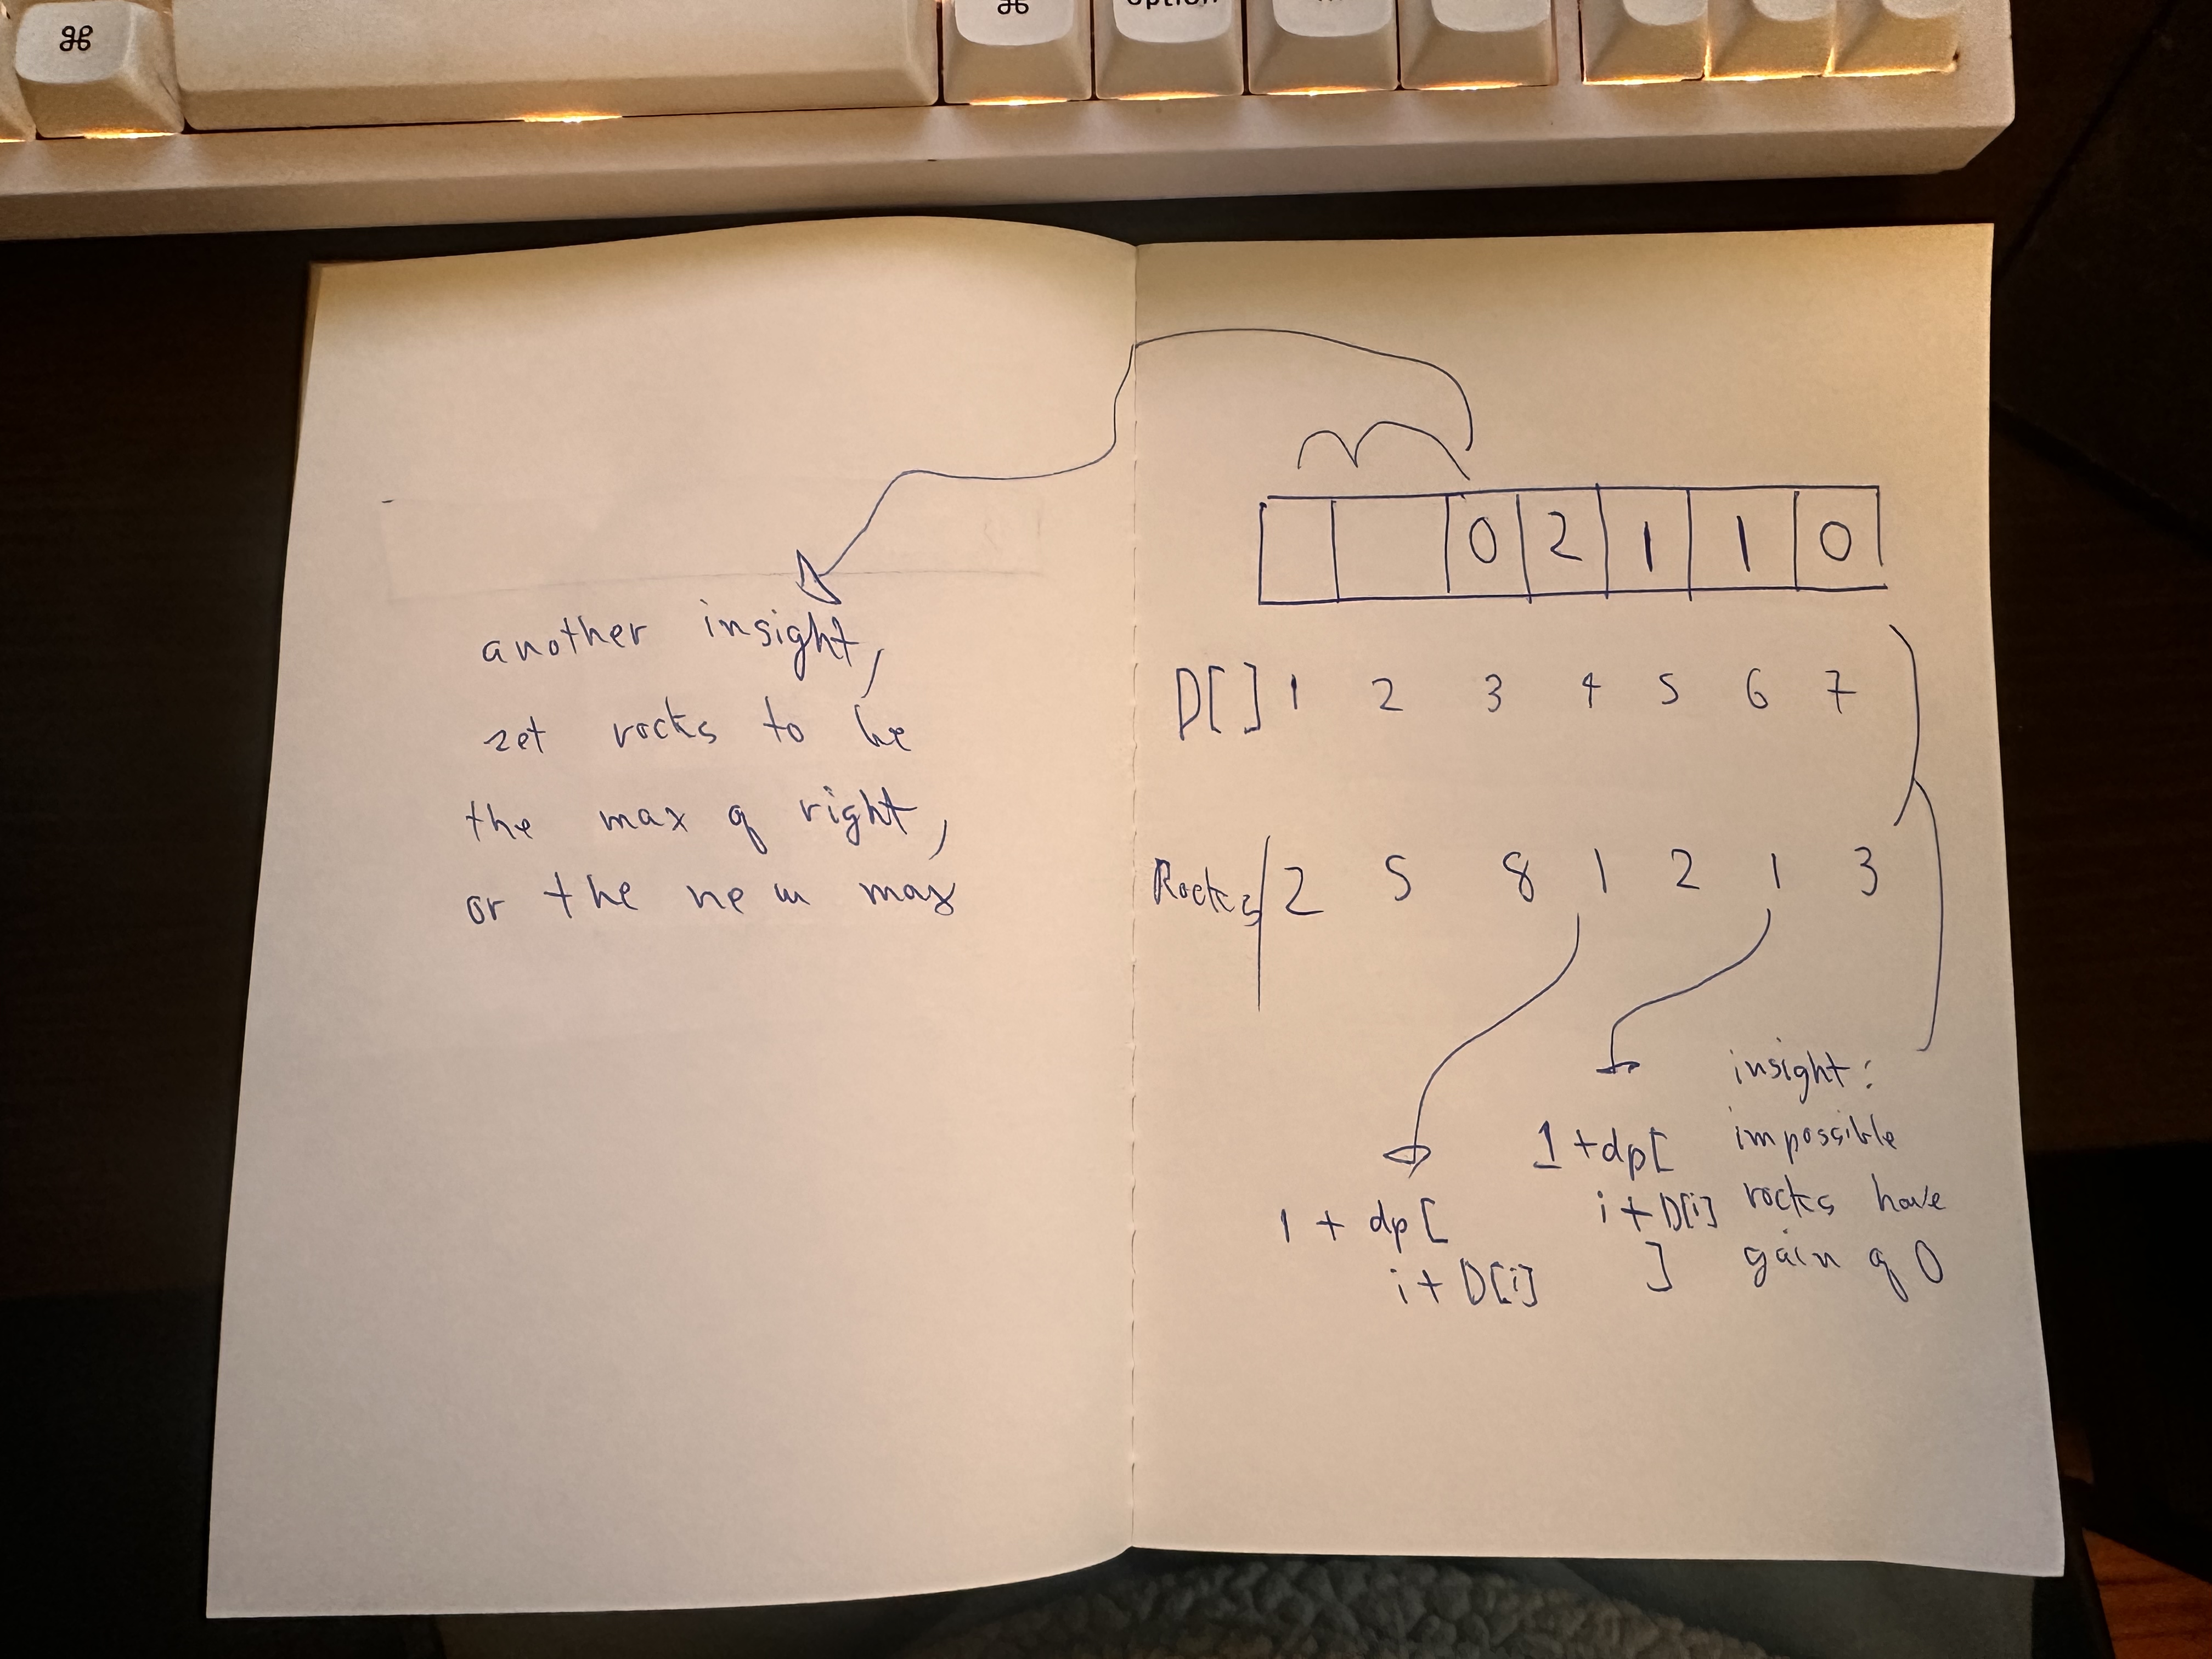 another insight,
set rocks to be
the max of right,
or the new max
0 2 1 1 0
D[] 1 2 3 4 5 6 7
Rocks 2 5 8 1 2 1 3
1 + dp[
i + D[i]
1 + dp[
i + D[i]
]
insight:
impossible
rocks have
gain of 0
⌘
⌘
option